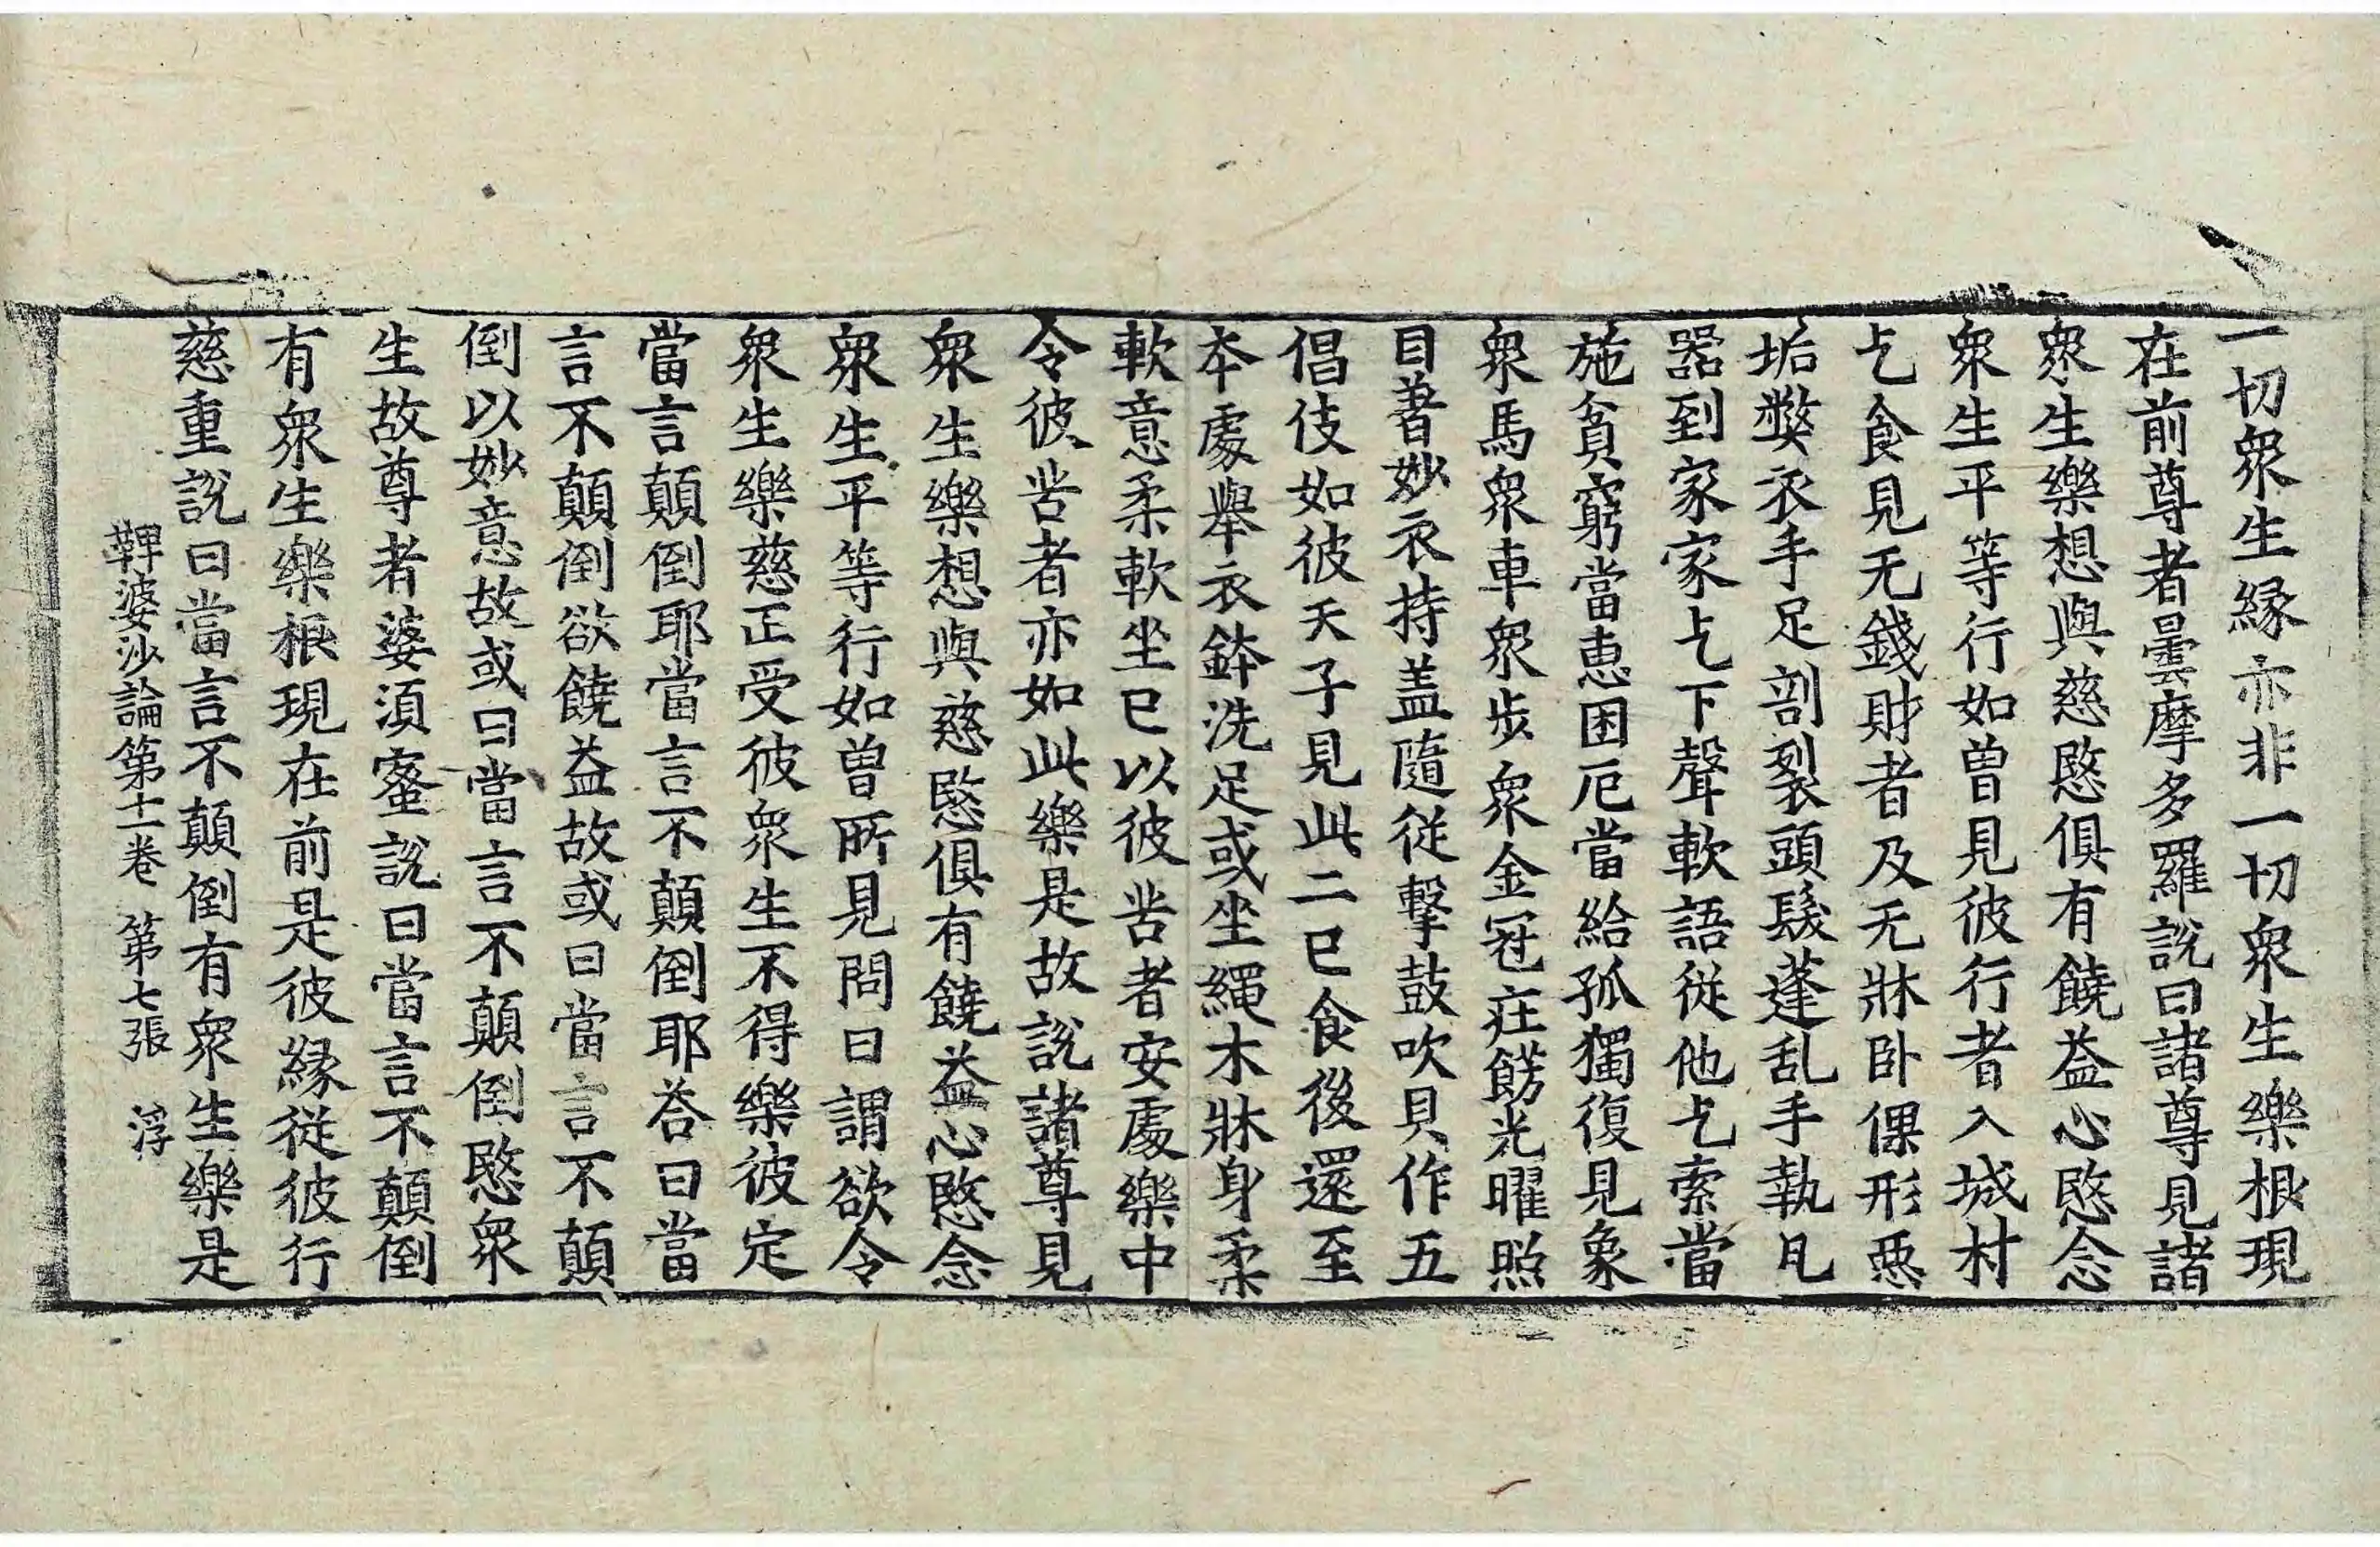 一切衆生縁亦非一切衆生樂根現
在前尊者曇摩多羅說曰諸尊見諸
衆生樂想與慈愍俱有饒益心愍念
衆生平等行如曽見彼行者入城村
乞食見无錢財者及无牀卧倮形惡
垢弊衣手足剖裂頭髮蓬乱手執凡
器到家家乞下聲軟語從他乞索當
施貧窮當惠困厄當給孤獨復見象
衆馬衆車衆步衆金冠庄餝光曜照
目著妙衣持盖隨從擊鼓吹貝作五
倡伎如彼天子見此二已食後還至
本處舉衣鉢洗足或坐繩木牀身柔
軟意柔軟坐已以彼苦者安處樂中
令彼苦者亦如此樂是故說諸尊見
衆生樂想與慈愍俱有饒益心愍念
衆生平等行如曽所見問曰謂欲令
衆生樂慈正受彼衆生不得樂彼定
當言顛倒耶當言不顛倒耶荅曰當
言不顛倒欲饒益故或曰當言不顛
倒以妙意故或曰當言不顛倒愍衆
生故尊者婆湏蜜說曰當言不顛倒
有衆生樂根現在前是彼縁從彼行
慈重說曰當言不顛倒有衆生樂是
鞞婆沙論第十一卷　第七張　浮